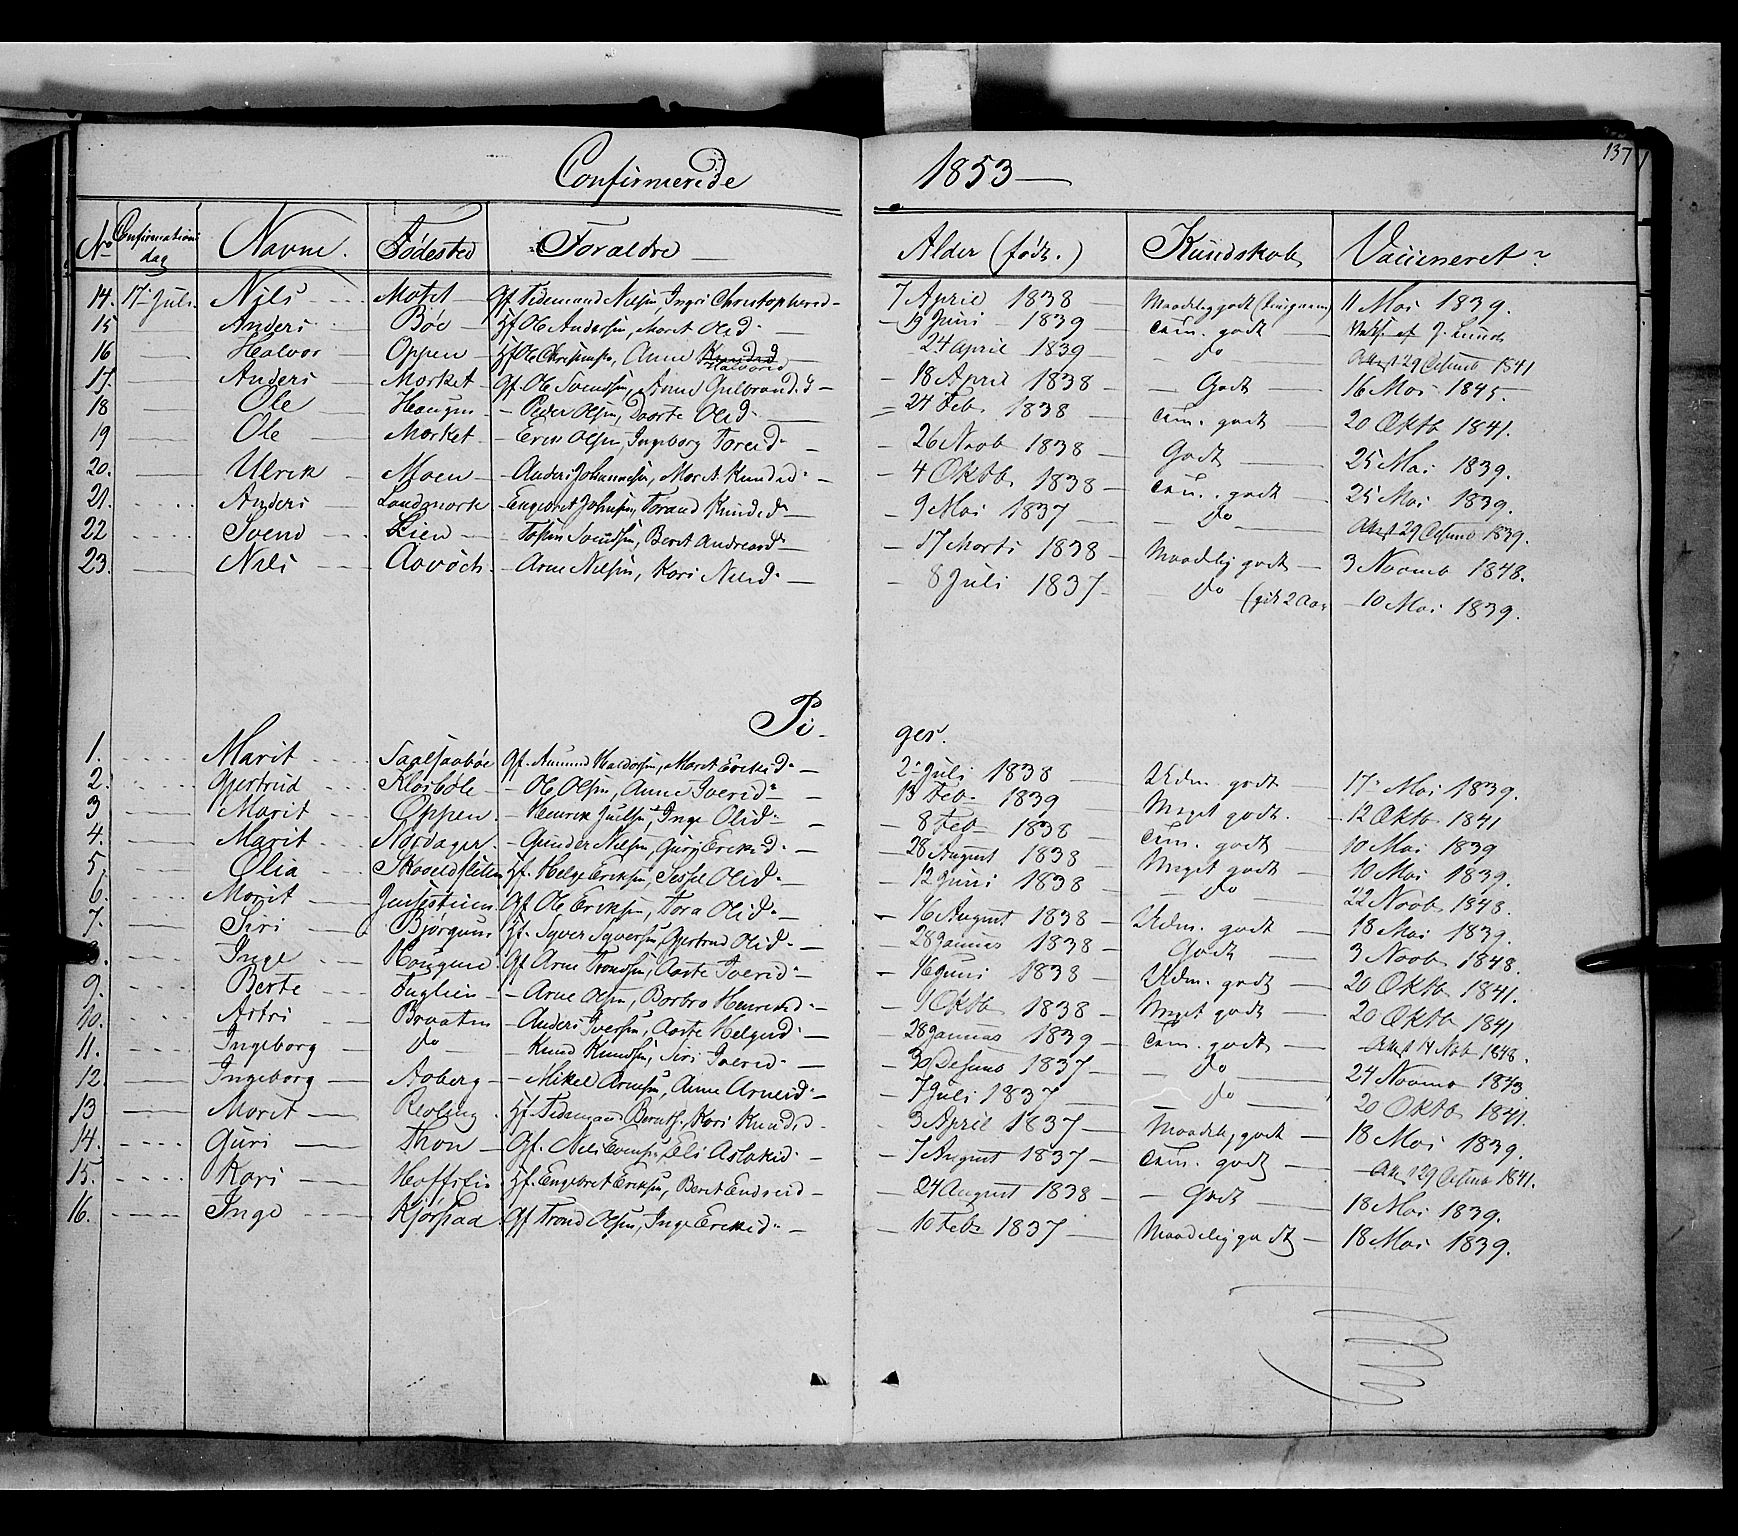 137
Confirmerede 1853
No Confirmations dag Navne. Fødested Forældre Alder (født.) Kundskab Vaccineret?
14. 17 Juli Nils Motet Gf. Tidemand Nielsen, Ingri Christophersd 7 April 1838 Maadelig godt 11 Mai 1839.
15 Anders Bøe Hf Ole Andersen, Marit Olsd 9 Juni 1839 Tem. godt J. Lunds
16 Halvor Oppen Hf Ole Christensen, Anne Halvorsd 24 April 1839 Do Attest 29 1841
17. Anders Morket Gf. Ole Svendsen, Anne Gulbrandsd 18 April 1838 Godt 16 Mai 1845.
18 Ole Haugen Peder Olsen, Doorte Olsd 24 Feb 1838 Tem. godt 20 Oktb 1841.
19 Ole Morket Erik Olsen, Ingeborg Toresd 26 Novb 1838 Godt 25 Mai 1839.
20. Ulrik Moen Anders Johannesen, Marit Knudsd 4 Oktb 1838 Tem. godt 25 Mai 1839.
21. Anders Landmark Engebret Johnsen, Torand Knudsd 9 Mai 1837 Do Attest 29 1839.
22 Svend Lien Tosten Svendsen, Berit Andreasd 17 Marts 1838 Maadelig godt 3 Novemb 1848.
23. Nils Aavoch Arne Nilsen, Kari Nilsd 8 Juli 1837 Do (gik 2 Aar 10 Mai 1839.
Pi-ger.
1. Marit Saglsaabøe Gf. Amund Haldorsen, Marit Eriksd 2 Juli 1838 Udm. godt 17 Mai 1839.
2. Gjertrud Klosbøle Ole Olsen, Anne Iversd 13 Feb 1839 Meget godt 12 Oktb 1841
3 Marit Oppen Henrik Juelsen, Inge Olsd 8 Feb 1838 Tem. godt 10 Mai 1839
4. Marit Nordager Gunder Nilsen, Guri Eriksd 28 August 1838 Meget godt 10 Mai 1839.
5 Olia Skoveldsletten Hf. Helge Eriksen, Sessel Olsd 12 Juni 1838 Do 22 Novb 1848.
6. Marit Jensestuen Gf Ole Eriksen, Tora Olsd 16 August 1838 Udm. godt 18 Mai 1839.
7. Siri Bjørgum Hf. Syver Syversen, Gjertrud Olsd 28 Januar 1838 Godt 3 Novb 1848.
8. Inge Haugene Gf Arne Trondsen, Aaste Iversd 16 Juni 1838 Udm. godt 20 Oktb 1841.
9. Berte Fuglien Arne Olsen, Barbro Henriksd 9 Oktb 1838 Meget godt 20 Oktb 1841
10. Astri Braaten Anders Iversen, Aaste Helgesd 28 Januar 1839 Tem. godt Attest 14 Nob 1848.
11. Ingeborg Do Knud Knudsen, Siri Iversd 30 1837 Do 24 Novmb 1843.
12. Ingeborg Aaberg Mikel Arnesen, Anne Arnesd 7 Juli 1837 Do 20 Oktb 1841.
13 Marit Revling Hf. Tidemand Berntsen, Kari Knudsd 3 April 1837 Maadelig godt 18 Mai 1839.
14. Guri Thon Gf. Nils Evensen, Eli Aslaksd 7 August 1837 Tem. godt Attest 29 1841.
15. Kari Hoffsli Hf. Engebret Eriksen, Berit Endresd 24 August 1838 Godt 18 Mai 1839.
16. Inge Kjørstad Gf Trond Olsen, Inge Eriksd 10 Feb 1837 Maadelig godt 18 Mai 1839.